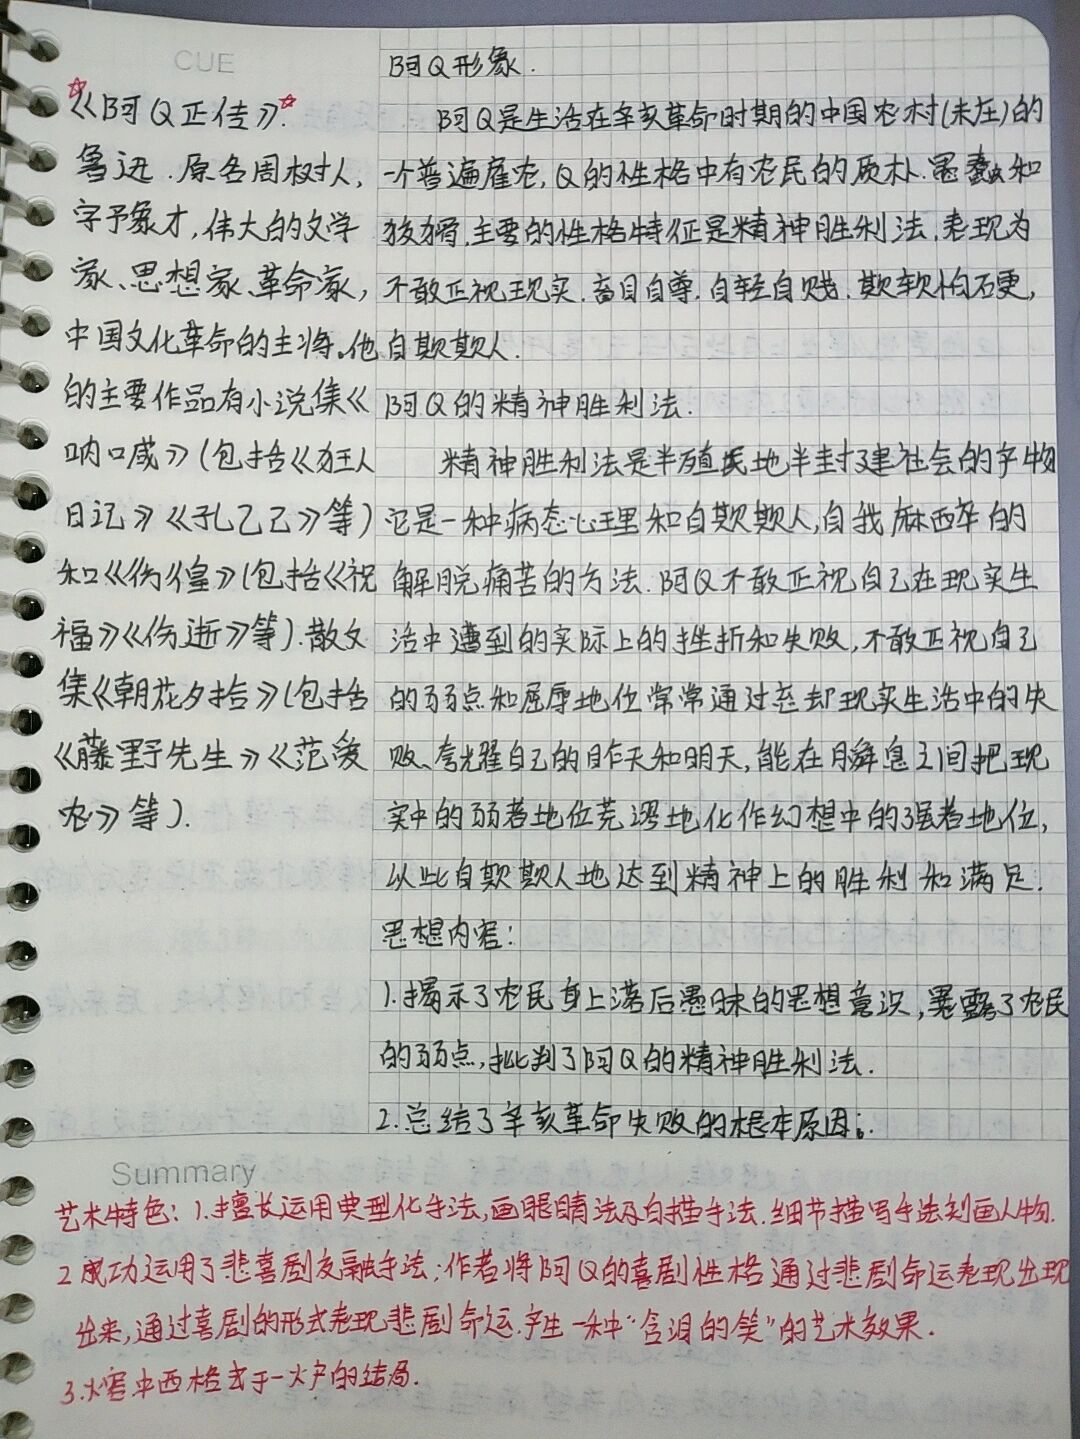 CUE
《阿Q正传》.
鲁迅.原名周树人,
字予象才,伟大的文学
家、思想家、革命家,
中国文化革命的主将。他
的主要作品有小说集《
呐喊》(包括《狂人
日记》《孔乙己》等)
和《彷徨》(包括《祝
福》《伤逝》等).散文
集《朝花夕拾》(包括
《藤野先生》《范爱
农》等).
阿Q形象.
阿Q是生活在辛亥革命时期的中国农村(未庄)的
一个普遍雇农,Q的性格中有农民的质朴.愚蠢和
狡猾.主要的性格特征是精神胜利法.表现为
不敢正视现实.妄自自尊.自轻自贱.欺软怕硬,
自欺欺人.
阿Q的精神胜利法.
精神胜利法是半殖民地半封建社会的产物
它是一种病态心理和自欺欺人,自我麻痹的
解脱痛苦的方法.阿Q不敢正视自己在现实生
活中遭到的实际上的挫折和失败,不敢正视自己
的弱点和屈辱地位常常通过忘却现实生活中的失
败、夸耀自己的昨天和明天,能在瞬息之间把现
实中的弱者地位荒谬地化作幻想中的强者地位,
以此自欺欺人地达到精神上的胜利和满足.
思想内容:
1.揭示了农民身上落后愚昧的思想意识,暴露了农民
的弱点,批判了阿Q的精神胜利法.
2.总结了辛亥革命失败的根本原因。
Summary
艺术特色:1.擅长运用典型化手法,画眼睛法及白描手法.细节描写手法刻画人物.
2.成功运用了悲喜剧交融手法;作者将阿Q的喜剧性格通过悲剧命运表现出现
出来,通过喜剧的形式表现悲剧命运.产生一种"含泪的笑"的艺术效果.
3.熔中西格式于一炉的结局.